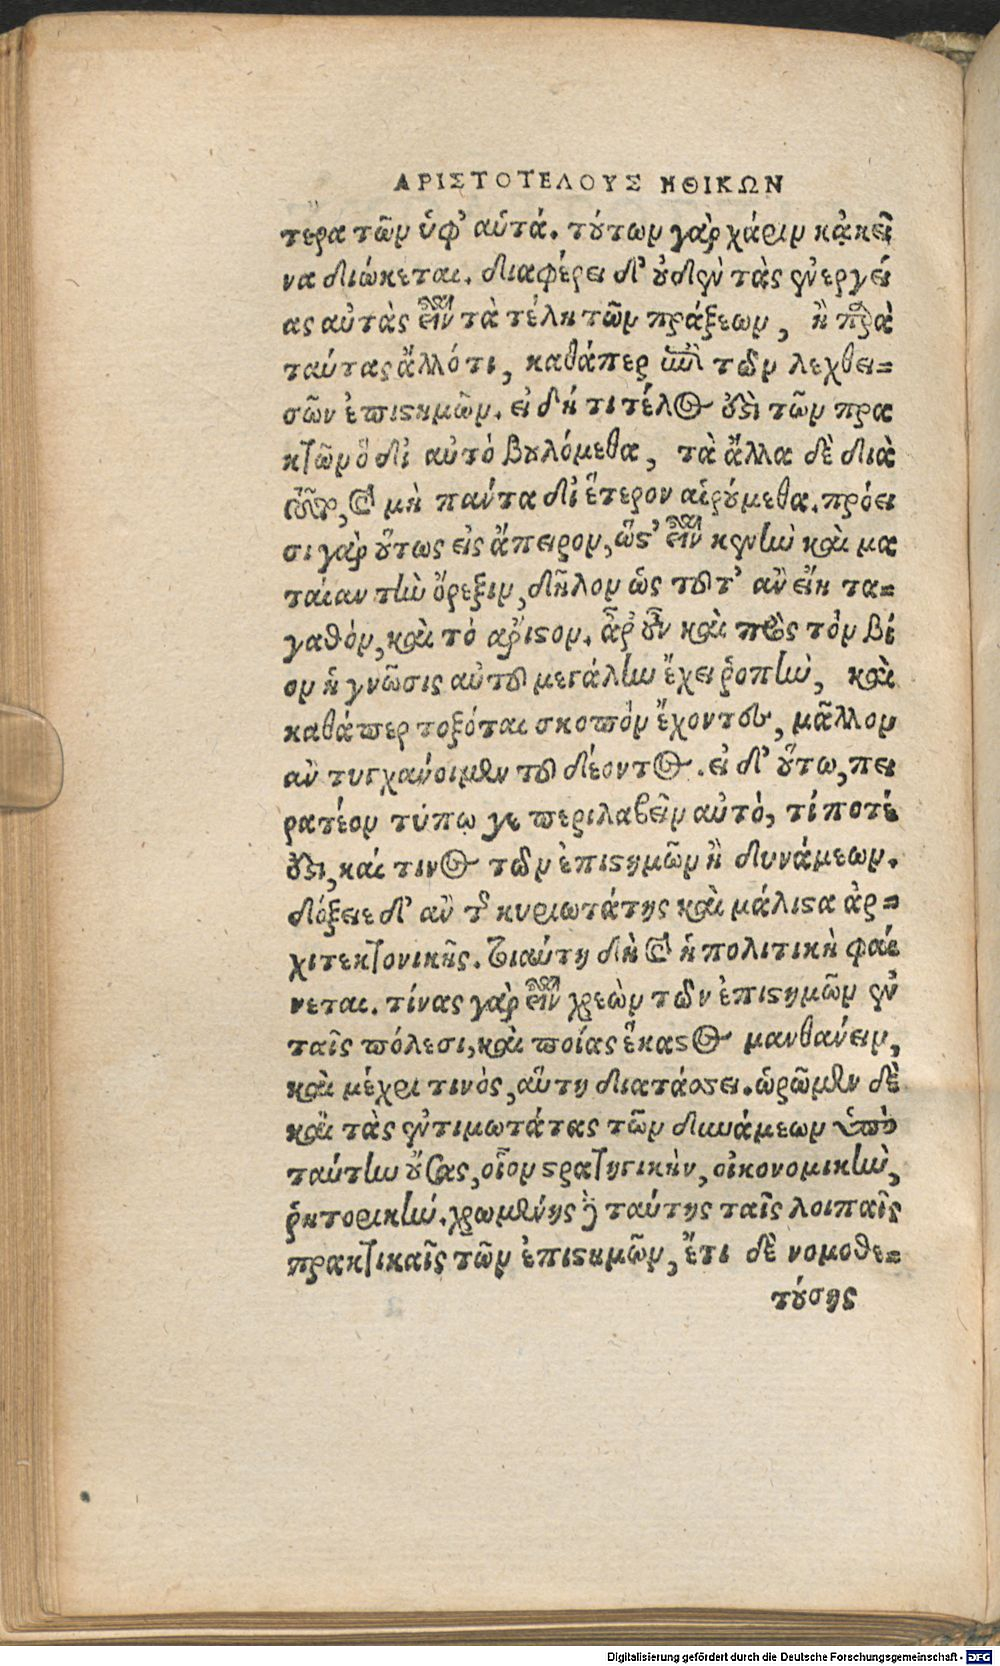 ΑΡΙΣΤΟΤΕΛΟΥΣ ΗΘΙΚΩΝ
τερα τῶν ὑφ' αὑτά. τούτων γὰρ χάριν κἀκεῖ
να διώκεται. διαφέρει δ' οὐδὲν τὰς ἐνεργεί
ας αὐτὰς εἶναι τὰ τέλη τῶν πράξεων, ἢ παρὰ
ταύτας ἄλλό τι, καθάπερ ἐπὶ τῶν λεχθει=
σῶν ἐπιστημῶν. εἰ δή τι τέλος ἐστὶ τῶν πρα
κτῶν ὃ δι' αὐτὸ βουλόμεθα, τὰ ἄλλα δὲ διὰ
τοῦτο, καὶ μὴ πάντα δι' ἕτερον αἱρούμεθα. πρόει
σι γὰρ οὕτως εἰς ἄπειρον, ὥστ' εἶναι κενὴν καὶ μα
ταίαν τὴν ὄρεξιν, δῆλον ὡς τοῦτ' ἂν εἴη τα=
γαθὸν, καὶ τὸ ἄριστον. ἆρ' οὖν καὶ πρὸς τὸν βί
ον ἡ γνῶσις αὐτοῦ μεγάλην ἔχει ῥοπὴν, καὶ
καθάπερ τοξόται σκοπὸν ἔχοντες, μᾶλλον
ἂν τυγχάνοιμεν τοῦ δέοντος. εἰ δ' οὕτω, πει
ρατέον τύπῳ γε περιλαβεῖν αὐτὸ, τί ποτέ
ἐστι, καί τινος τῶν ἐπιστημῶν ἢ δυνάμεων.
δόξειε δ' ἂν τῆς κυριωτάτης καὶ μάλιστα ἀρ=
χιτεκτονικῆς. τοιαύτη δὴ καὶ ἡ πολιτικὴ φαί
νεται. τίνας γὰρ εἶναι χρεὼν τῶν ἐπιστημῶν ἐν
ταῖς πόλεσι, καὶ ποίας ἕκαστος μανθάνειν,
καὶ μέχρι τινὸς, αὕτη διατάσσει. ὁρῶμεν δὲ
καὶ τὰς ἐντιμωτάτας τῶν δυνάμεων ὑπὸ
ταύτην οὔσας, οἷον στρατηγικὴν, οἰκονομικὴν,
ῥητορικήν. χρωμένης δὲ ταύτης ταῖς λοιπαῖς
πρακτικαῖς τῶν ἐπιστημῶν, ἔτι δὲ νομοθε=
τούσης
Digitalisierung gefördert durch die Deutsche Forschungsgemeinschaft - DFG